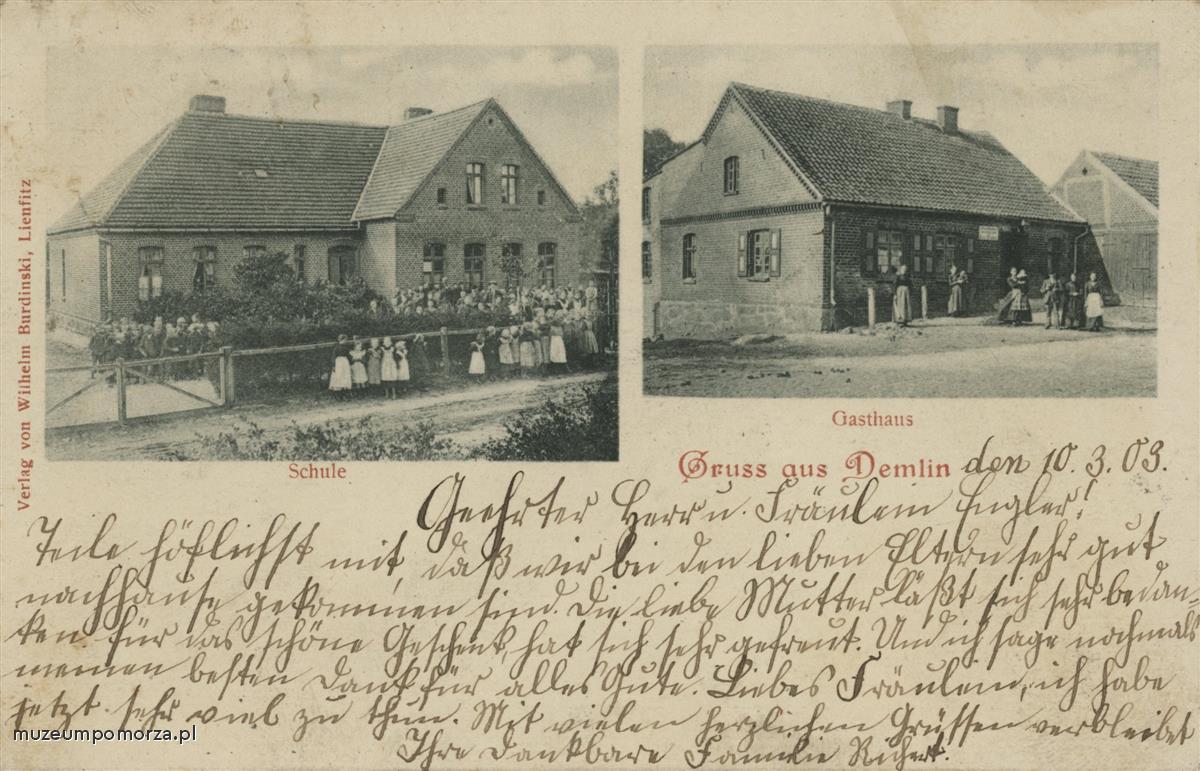 Verlag von Wilhelm Burdinski, Lienfitz
Schule
Gasthaus
Gruss aus Demlin den 10. 3. 03.
Geehrter Herr u. Fräulein Engler!
Teile höflichst mit, daß wir bei den lieben Eltern sehr gut
nachhause gekommen sind. Die liebe Mutter läßt sich sehr bedan-
ken für das schöne Geschenk, hat sich sehr gefreut. Und ich sage nochmals
meinen besten Dank für alles Gute. Liebes Fräulein, ich habe
jetzt sehr viel zu thun. Mit vielen herzlichen Grüssen verbleibet
Ihre Dankbare Familie Richert.
muzeumpomorza.pl